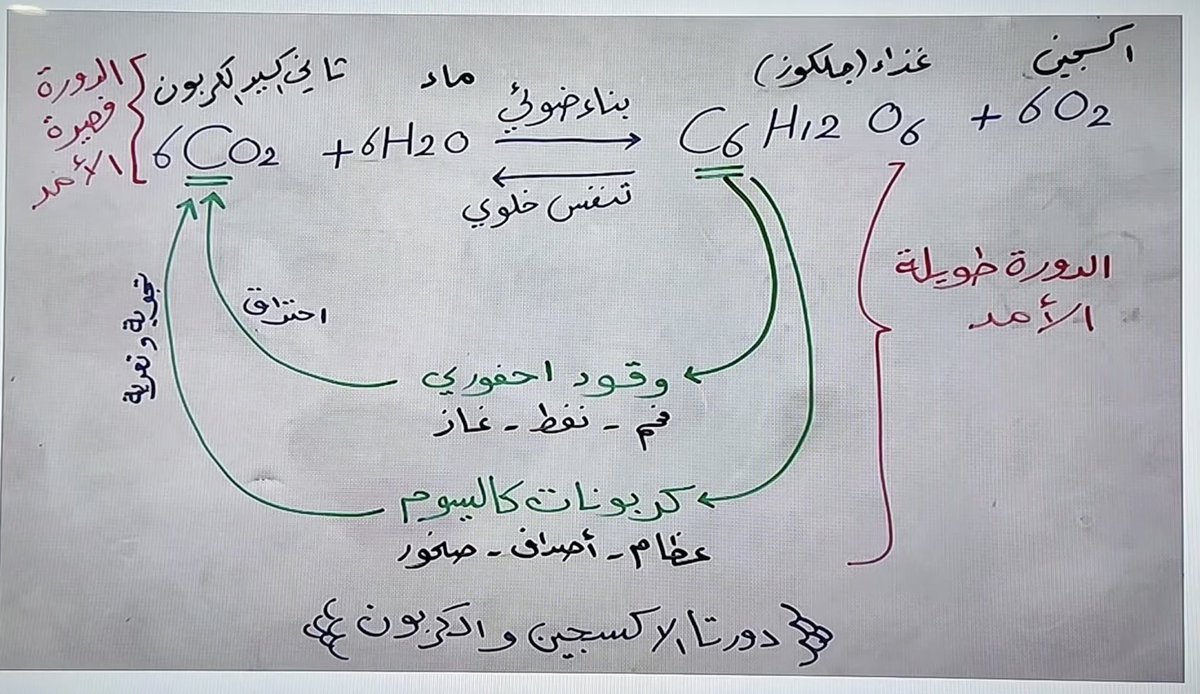 اكسجين
غذاء (جلكوز)
ماء
ثاني اكسيد الكربون
الدورة
قصيرة
الأمد
6CO2 + 6H2O
بناء ضوئي
تنفس خلوي
C6 H12 O6 + 6O2
الدورة طويلة
الأمد
احتراق
تجوية وتعرية
وقود احفوري
فحم - نفط - غاز
كربونات كالسيوم
عظام - أصداف - صخور
دورتا الاكسجين والكربون